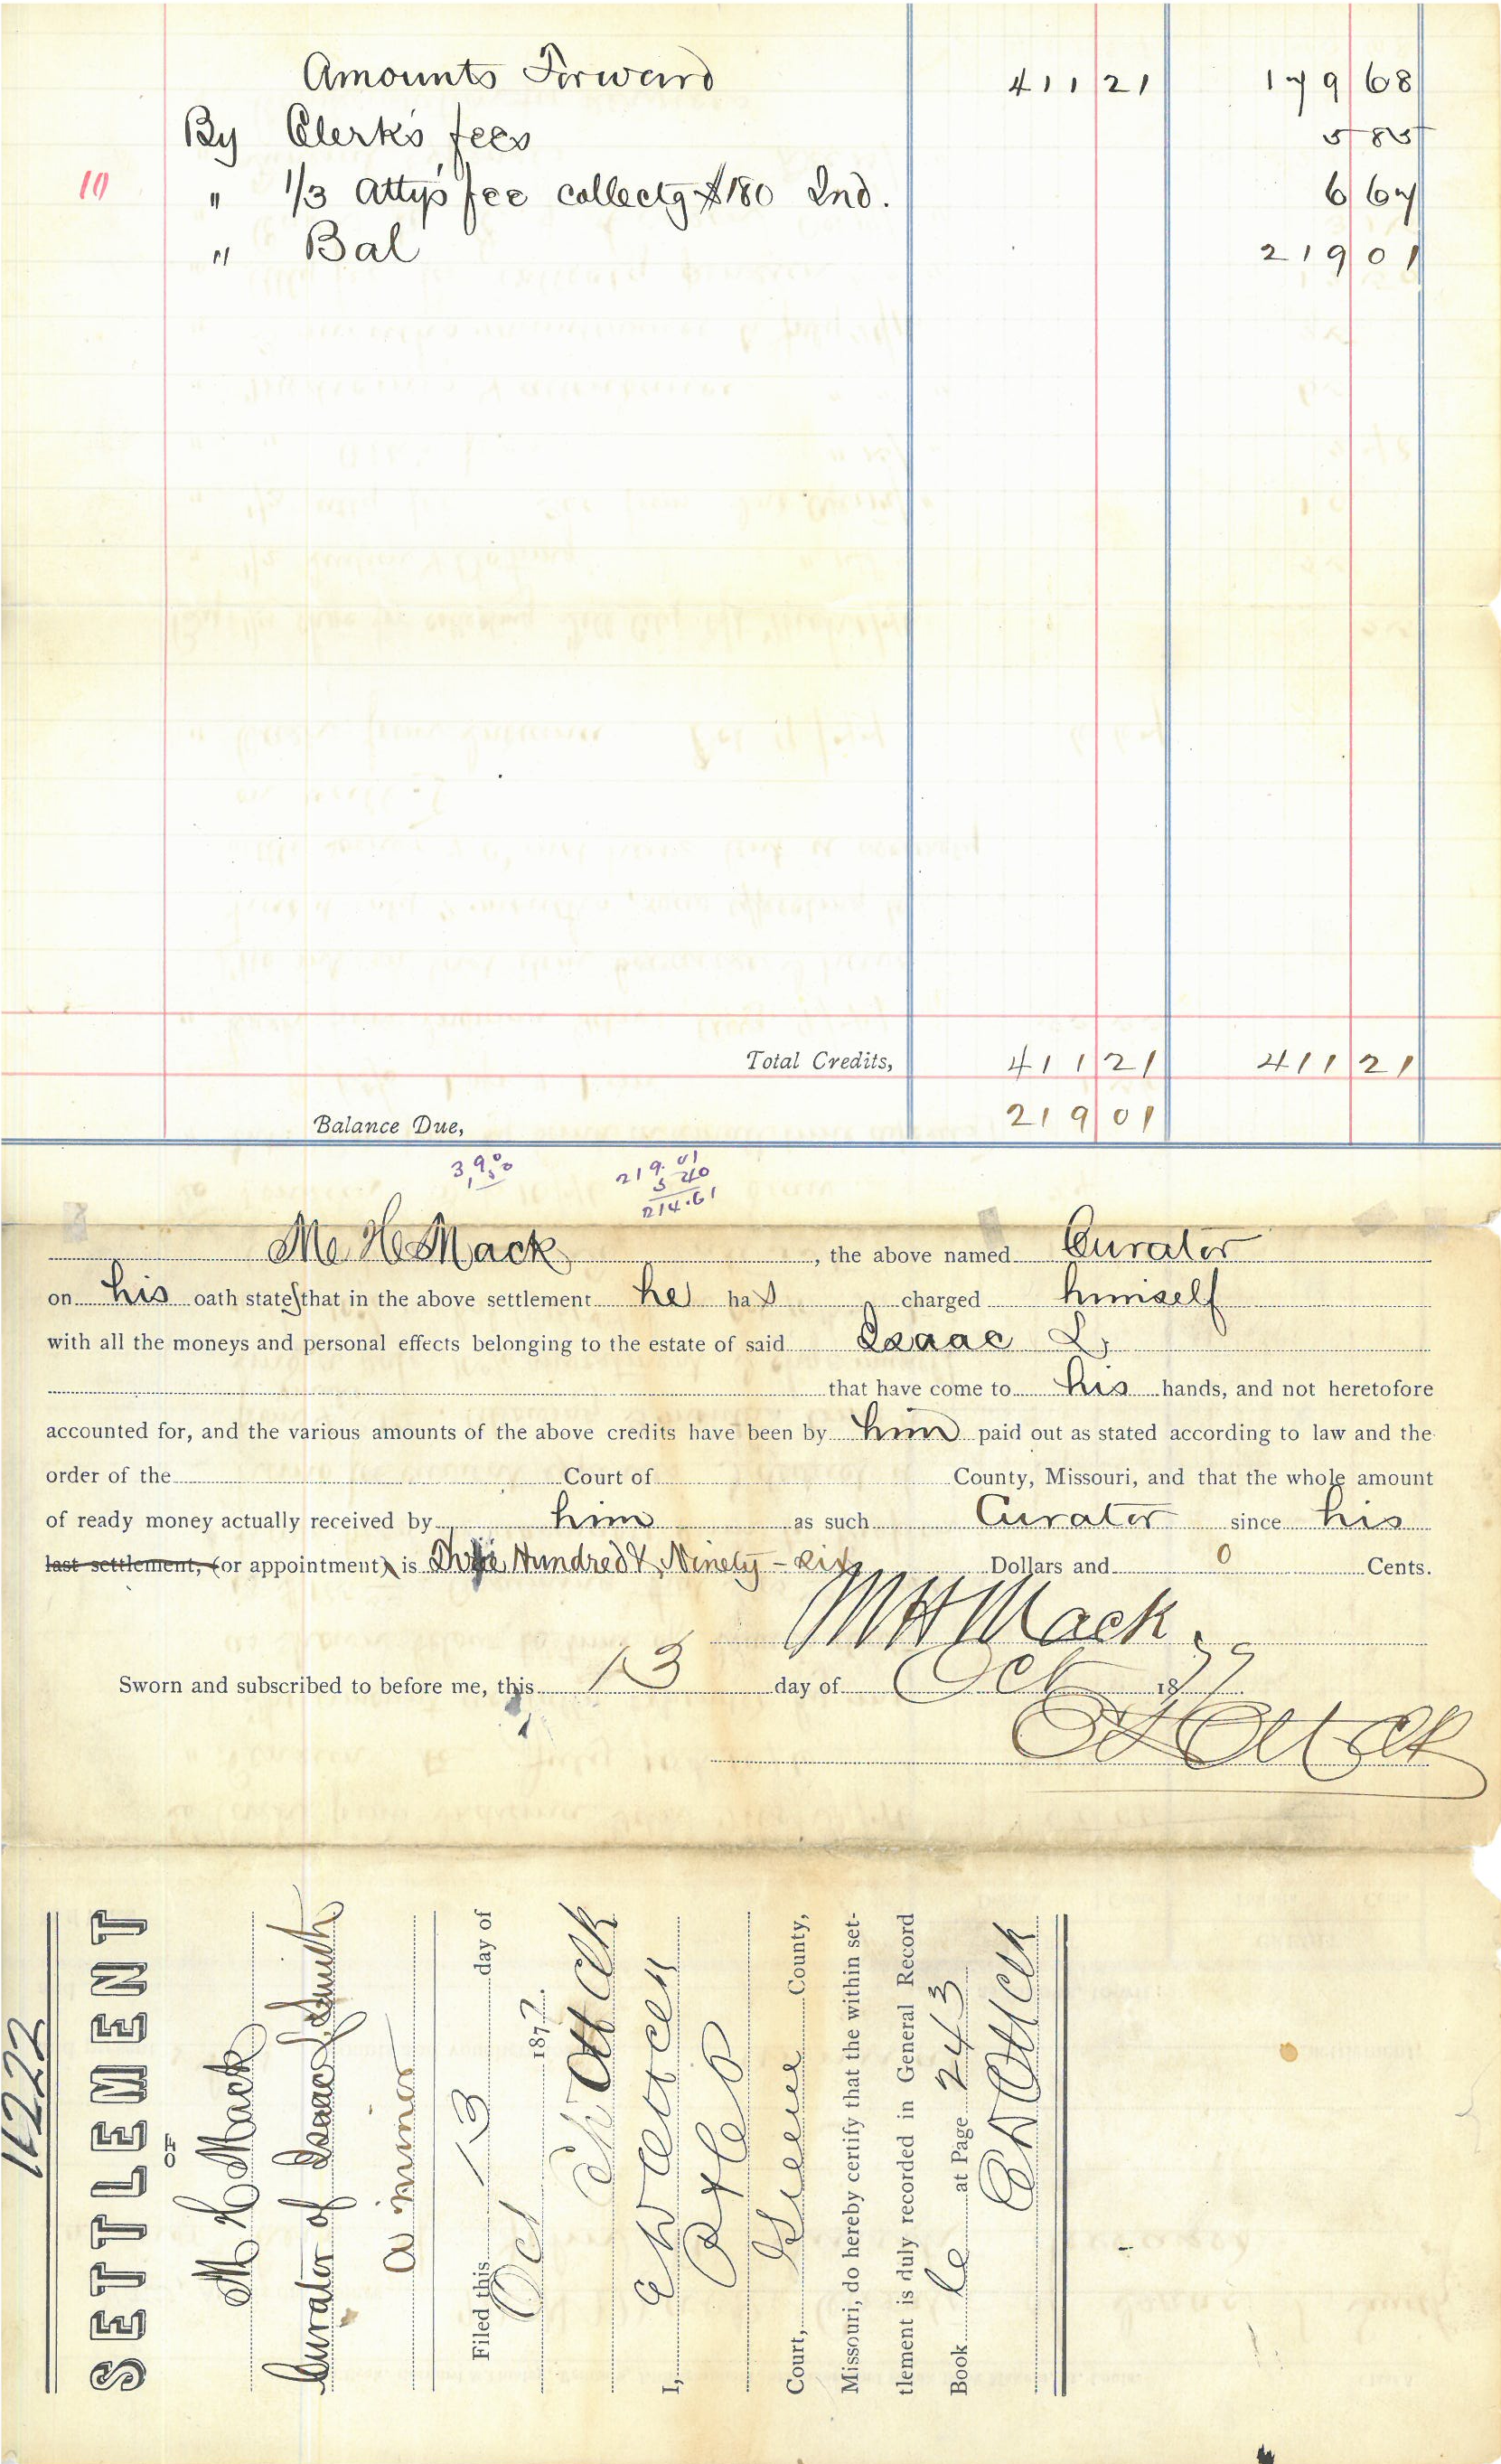 Amounts Forward 411 21 179 68
By Clerk's fees 5 85
10 " 1/3 Atty's fee collectg $180 Ind. 6 67
" Bal 219 01
Total Credits, 411 21 411 21
Balance Due, 219 01
219.01
5 40
214.61
M. H. Mack, the above named Curator
on his oath states that in the above settlement he has charged himself
with all the moneys and personal effects belonging to the estate of said Isaac L,
that have come to his hands, and not heretofore
accounted for, and the various amounts of the above credits have been by him paid out as stated according to law and the
order of the Court of County, Missouri, and that the whole amount
of ready money actually received by him as such Curator since his
last settlement, (or appointment) is Three Hundred & Ninety-six Dollars and 0 Cents.
M H Mack
Sworn and subscribed to before me, this 13 day of Oct 1879
SETTLEMENT
OF
M H Mack
Curator of Isaac L Smith
a minor
Filed this 13 day of
Oct 187
I,
Court, Greene County,
Missouri, do hereby certify that the within set-
tlement is duly recorded in General Record
Book at Page 243